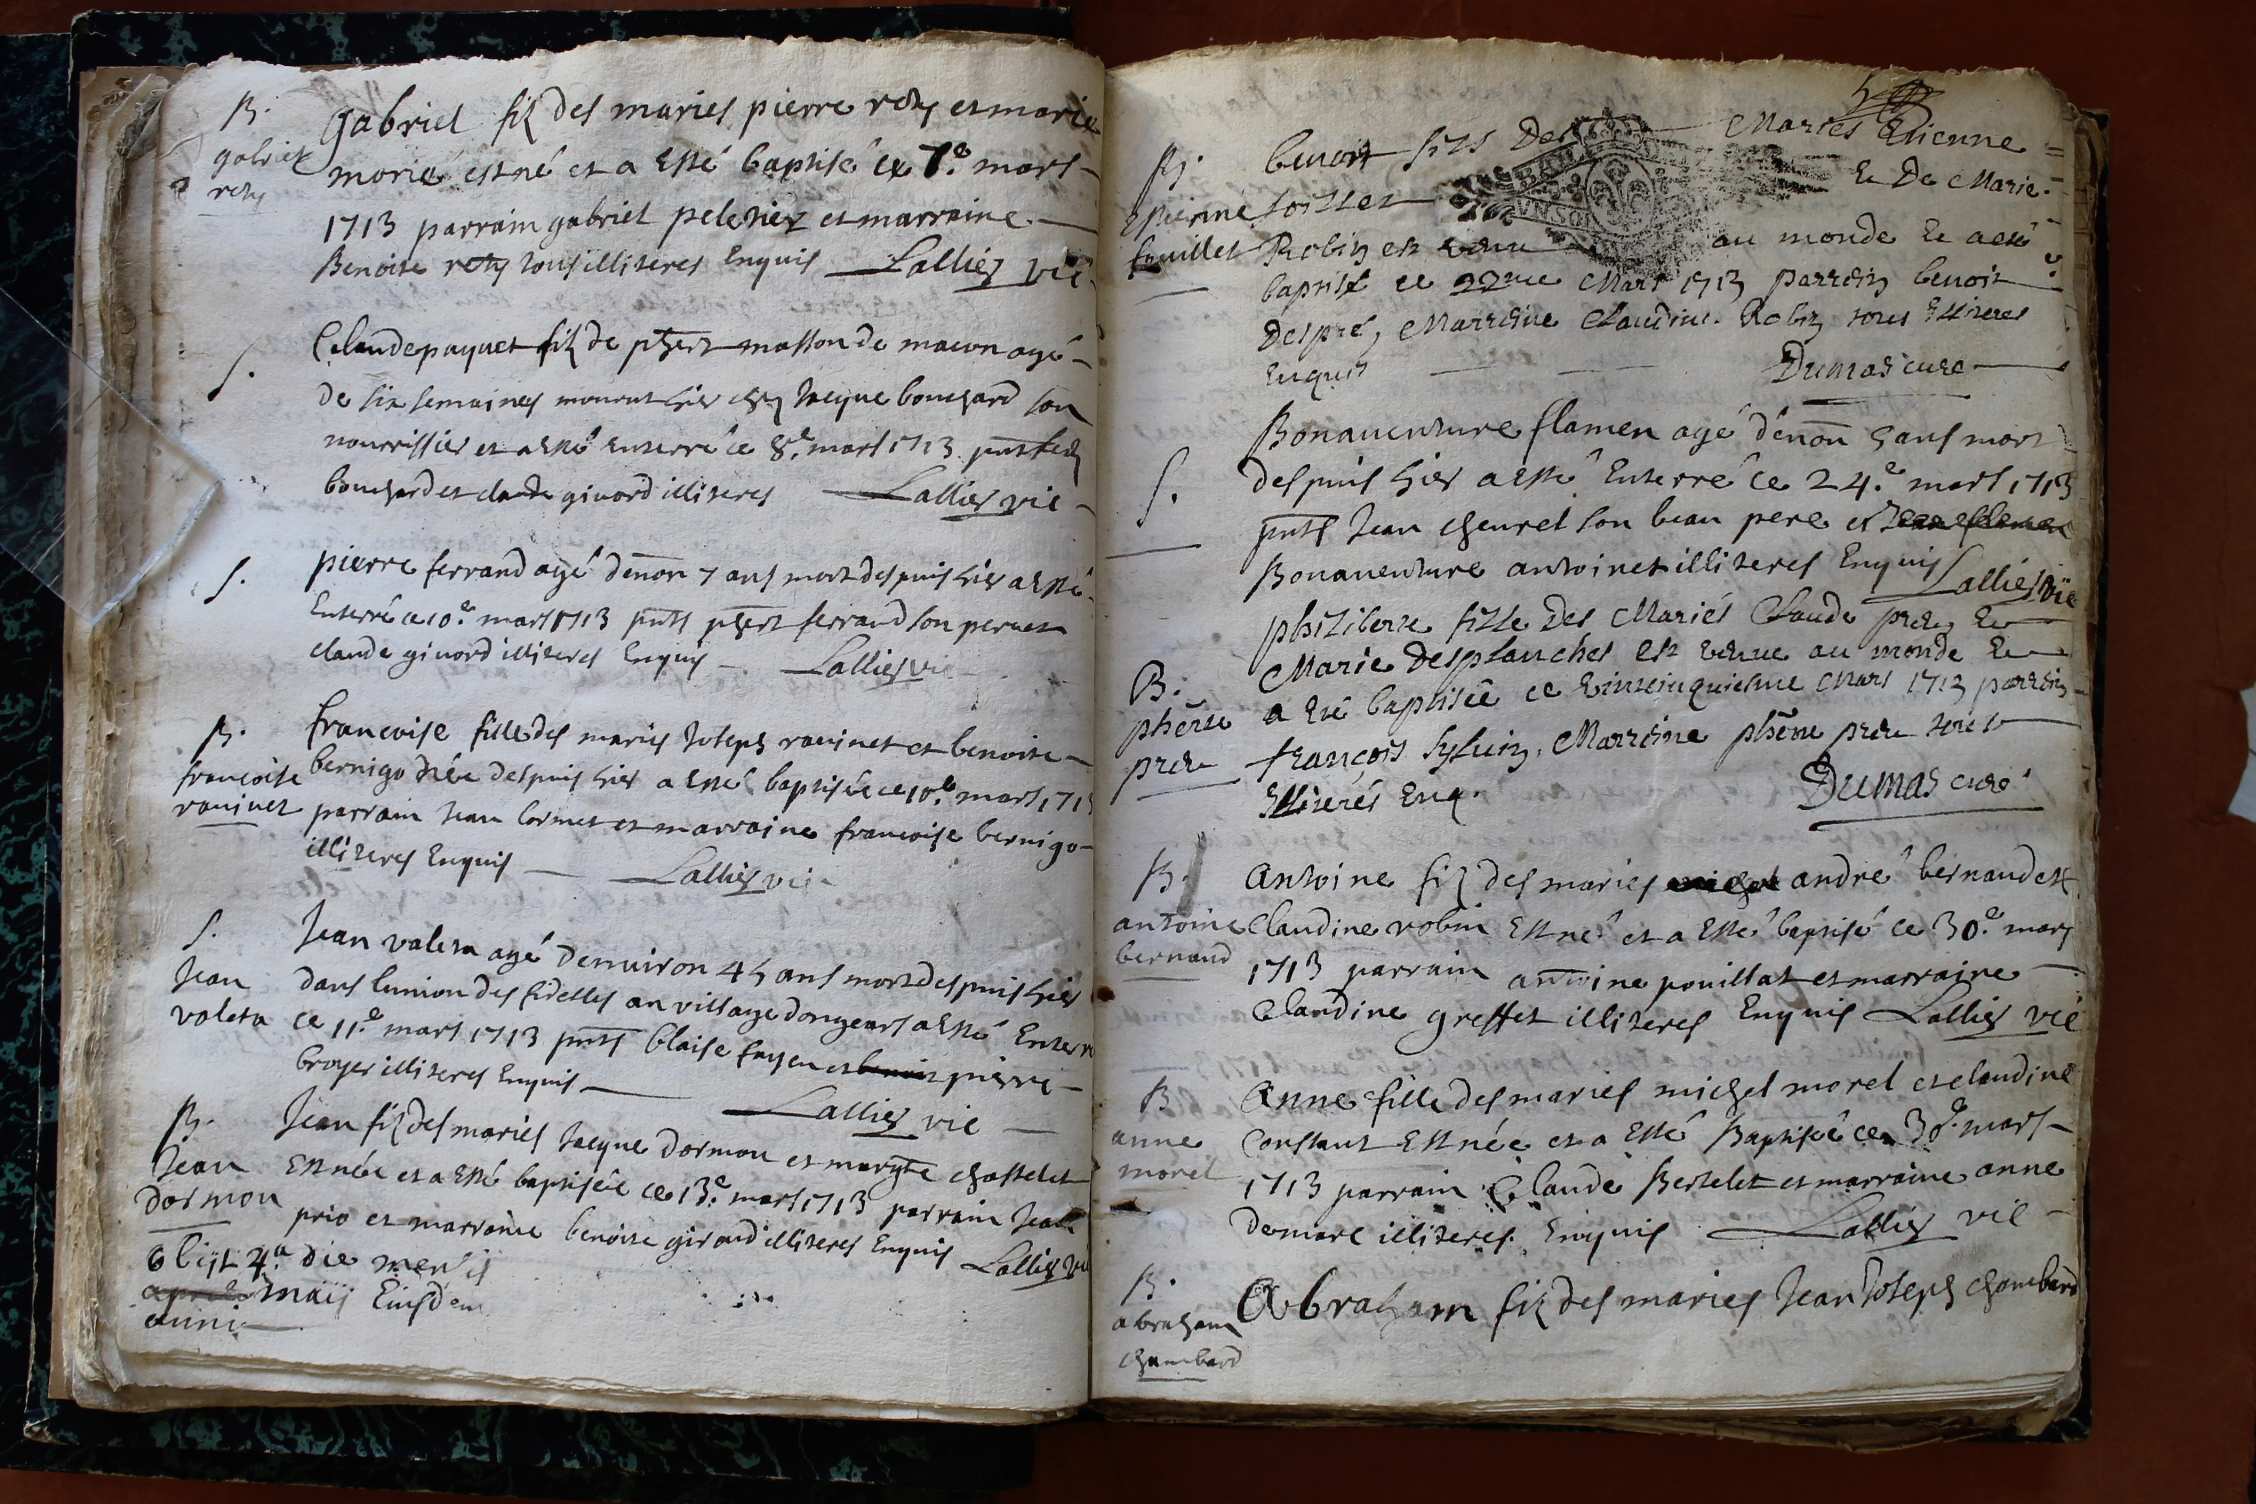 B.
gabriel
rety
gabriel filz des maries pierre rety et marie
morié est né et a esté baptisé ce 7e. mars
1713 parrain gabriel peletier et marraine
Benoite rety tous illiteres Enquis Lallier vic
S.
Claude paquet filz de phbert masson de macon agé
de six semaines mourut hier chez Jacque bouchard son
nourrissier et a esté enterré ce 8e. mars 1713 pnts led
bouchard et claude givord illiteres Lallier vic
S.
pierre ferrand agé denon 7 ans mort despuis hier a esté
Enterré ce 10e. mars 1713 pnts phbert ferrand son pere et
claude givord illiteres Enquis Lallier vic
B.
francoise
ravinet
francoise fille des maries Joseph ravinet et benoite
bernigo née despuis hier a esté baptisée ce 10e. mars 1713
parrain Jean cornet et marraine francoise bernigo
illiteres Enquis Lallier vic
S.
Jean
valeta
Jean valeta agé denuiron 45 ans mort despuis hier
dans lunion des fidelles au village dongears a esté Enterré
ce 11e. mars 1713 pnts blaise fayen et benoit pierre
broyer illiteres Enquis
Lallier vic
B.
Jean
dormon
Jean filz des maries Jacque dormon et margte chastelet
Est née et a esté baptisée ce 13e. mars 1713 parrain Jean
prio et marraine benoite giraud illiteres Enquis Lallier vic
obiit 4a. die mensis
aprilis maij Eiusdem
anni
5
B.
Benoit fils Des Mariés Etienne
foillet Et De Marie
Robin est venu au monde Et a esté
baptisé ce 22me Mars 1713 parrein benoit
Despré, Marreine Claudine Robin tous Illiteres
Enquis Dumas curé
S.
Bonauenture flamen agé dénon 5 ans mort
despuis hier a esté Enterré ce 24e. mars 1713
pnts Jean cheuret son beau pere et Jean flamen
Bonauenture antoinet illiteres Enquis Lallier vic
B.
phérte
prely
philiberte fille Des Mariés Claude prely Et
Marie Desplanches est venue au monde Et
a Eté baptisée ce vintcinquiesme Mars 1713 parrein
françois sylvin, Marreine phérte prely tous
Illiterés Enq. Dumas curé
B.
antoine
bernaud
Antoine filz des maries michel andré bernaud et
Claudine robin Est né et a Esté baptisé ce 30e. mars
1713 parrain antoine pouillat et marraine
Claudine greffet illiteres Enquis Lallier vic
B
anne
morel
Anne fille des maries michel morel et claudine
Constant Est née et a Esté Baptisée ce 30e. mars
1713 parrain Claude Bertelet et marraine anne
demarc illiteres Enquis Lallier vic
B.
abraham
chambard
Abraham filz des maries Jean Joseph chambard